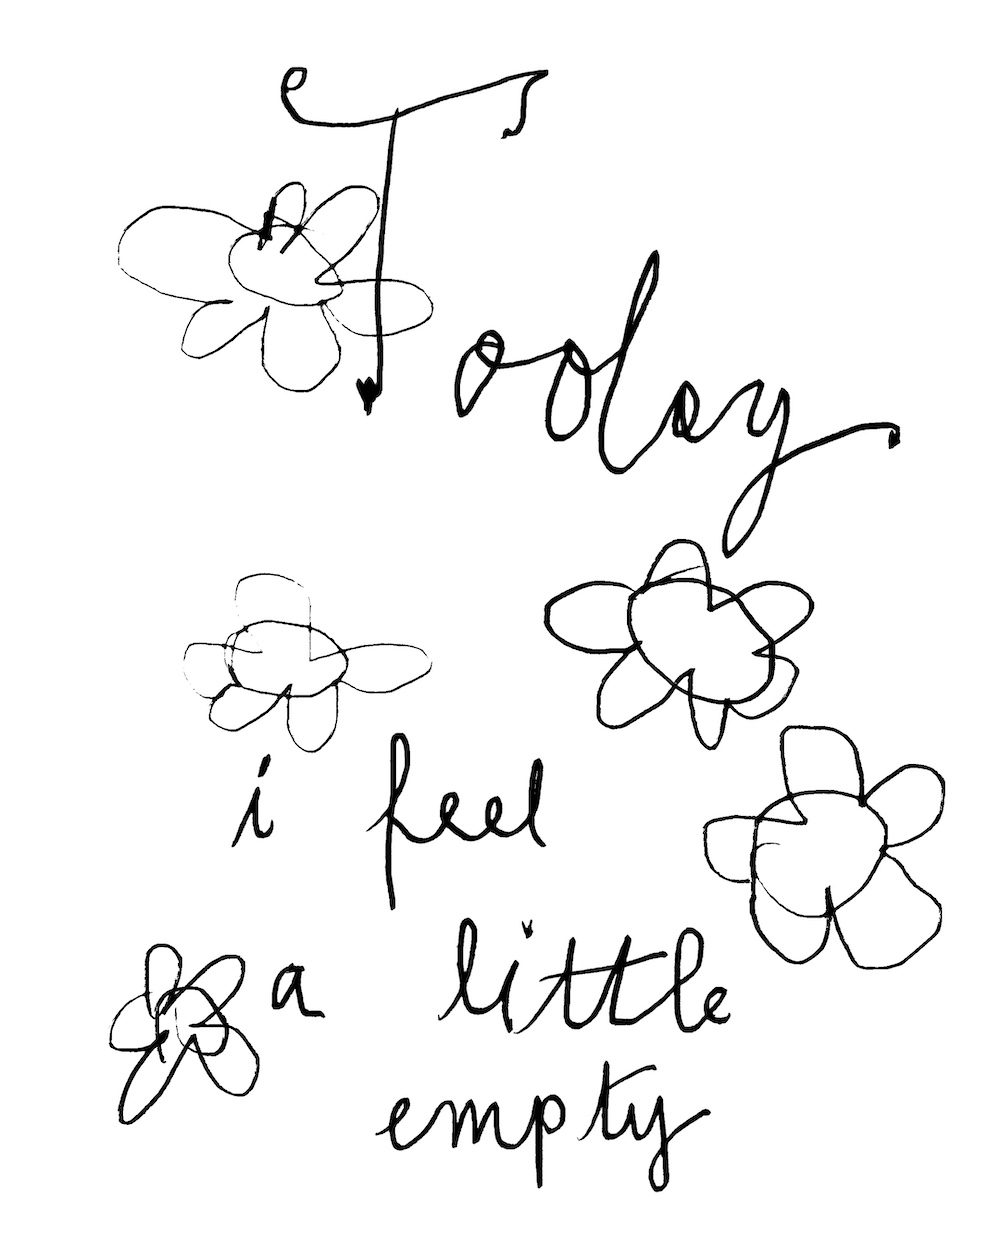 Today
i feel
a little
empty